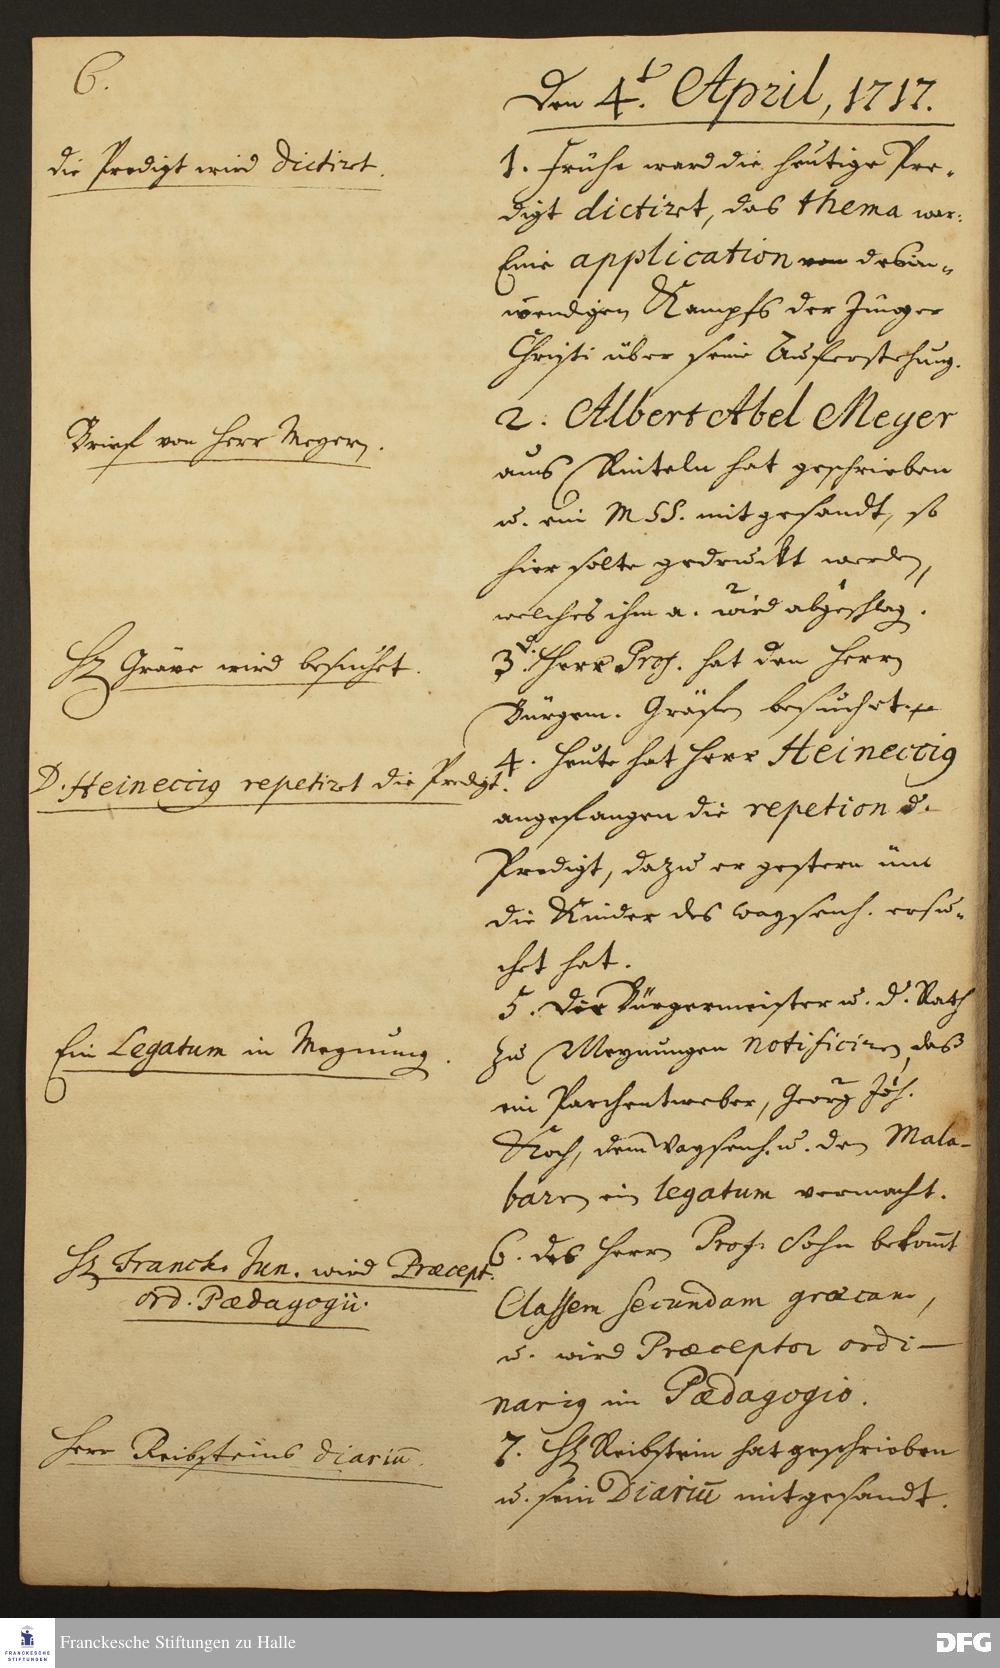 6.
Den 4t. April, 1717.
die Predigt wird dictiret.
1. Frühe ward die heutige Pre-
digt dictiret, das thema war:
Eine application von des in-
wendigen Kampfs der Jünger
Christi über seine Auferstehung.
Brief von Herr Meyern.
2. Albert Abel Meyer
aus Rinteln hat geschrieben
u. ein MSS. mitgesandt, so
hier solte gedruckt werden,
welches ihm a. wird abgeschlag.
H. Gräve wird besuchet.
3. d. Herr Prof. hat den Herrn
Bürgem. Gräfen besuchet.
D. Heineccig repetiret die Predigt.
4. Heute hat Herr Heineccig
angefangen die repetion d.
Predigt, dazu er gestern um
die Kinder des Waysenh. ersu-
chet hat.
Ein Legatum in Meynung.
5. Der Bürgermeister u. d. Rath
zu Meynungen notificiren, daß
ein Parchentweber, Georg Joh.
Koch, dem Waysenh. u. den Mala-
baren ein legatum vermacht.
H. Franck. Jun. wird Præcept.
ord. Pædagogii.
6. des Herrn Prof. Sohn bekomt
Classem secundam græcam,
u. wird Præceptor ordi-
narig im Pædagogio.
Herr Reibsteins diariu.
7. H. Reibstein hat geschrieben
u. sein Diariu mitgesandt.
FRANCKESCHE
STIFTUNGEN
Franckesche Stiftungen zu Halle
DFG